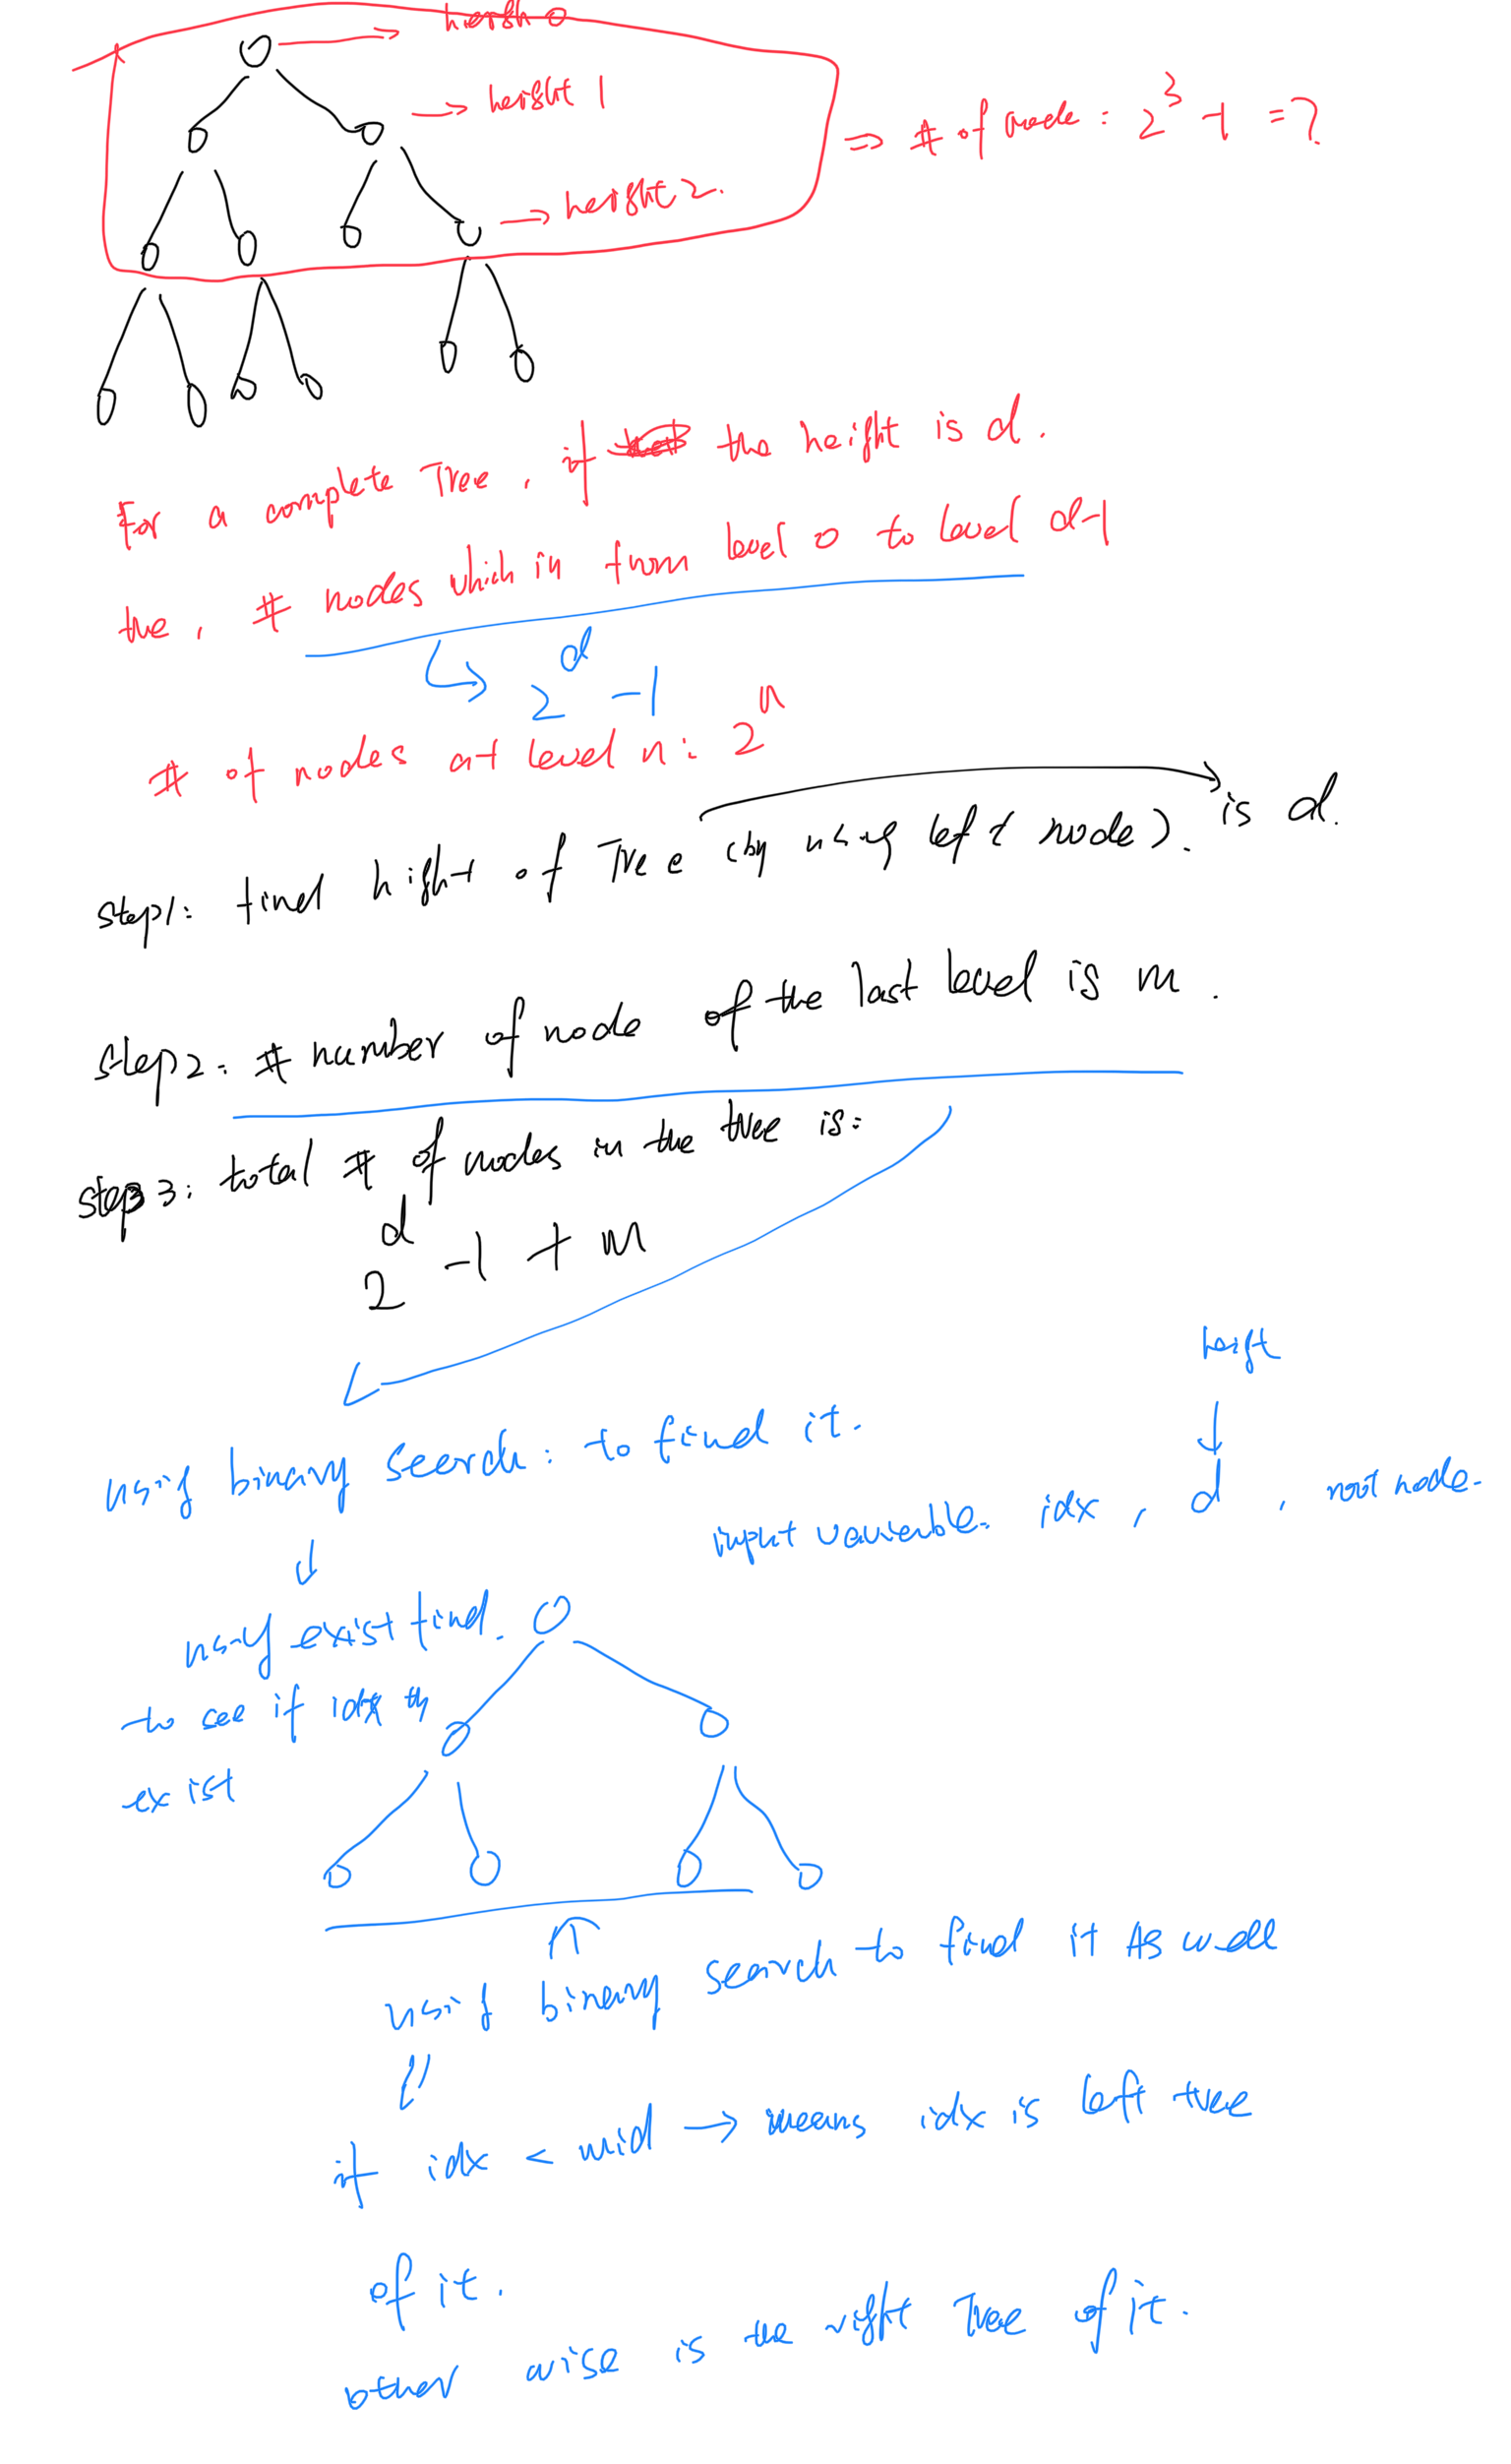 height 0
→ height 1
→ height 2.
⇒ # of node : 2^3 - 1 = ?
For a complete Tree, if the height is d.
the, # nodes which in from level 0 to level d-1
2^d - 1
# of nodes at level n: 2^n
step1: find hight of Tree (by using left node). is d.
step2: # number of node of the last level is m.
step3: total # of nodes in the tree is:
2^d - 1 + m
using binary search: to find it.
height
input variable. idx, d, root node.
using exist find.
to see if idx
exist
using binary search to find it As well
if idx < mid → means idx is left tree
of it.
other wise is the right Tree of it.